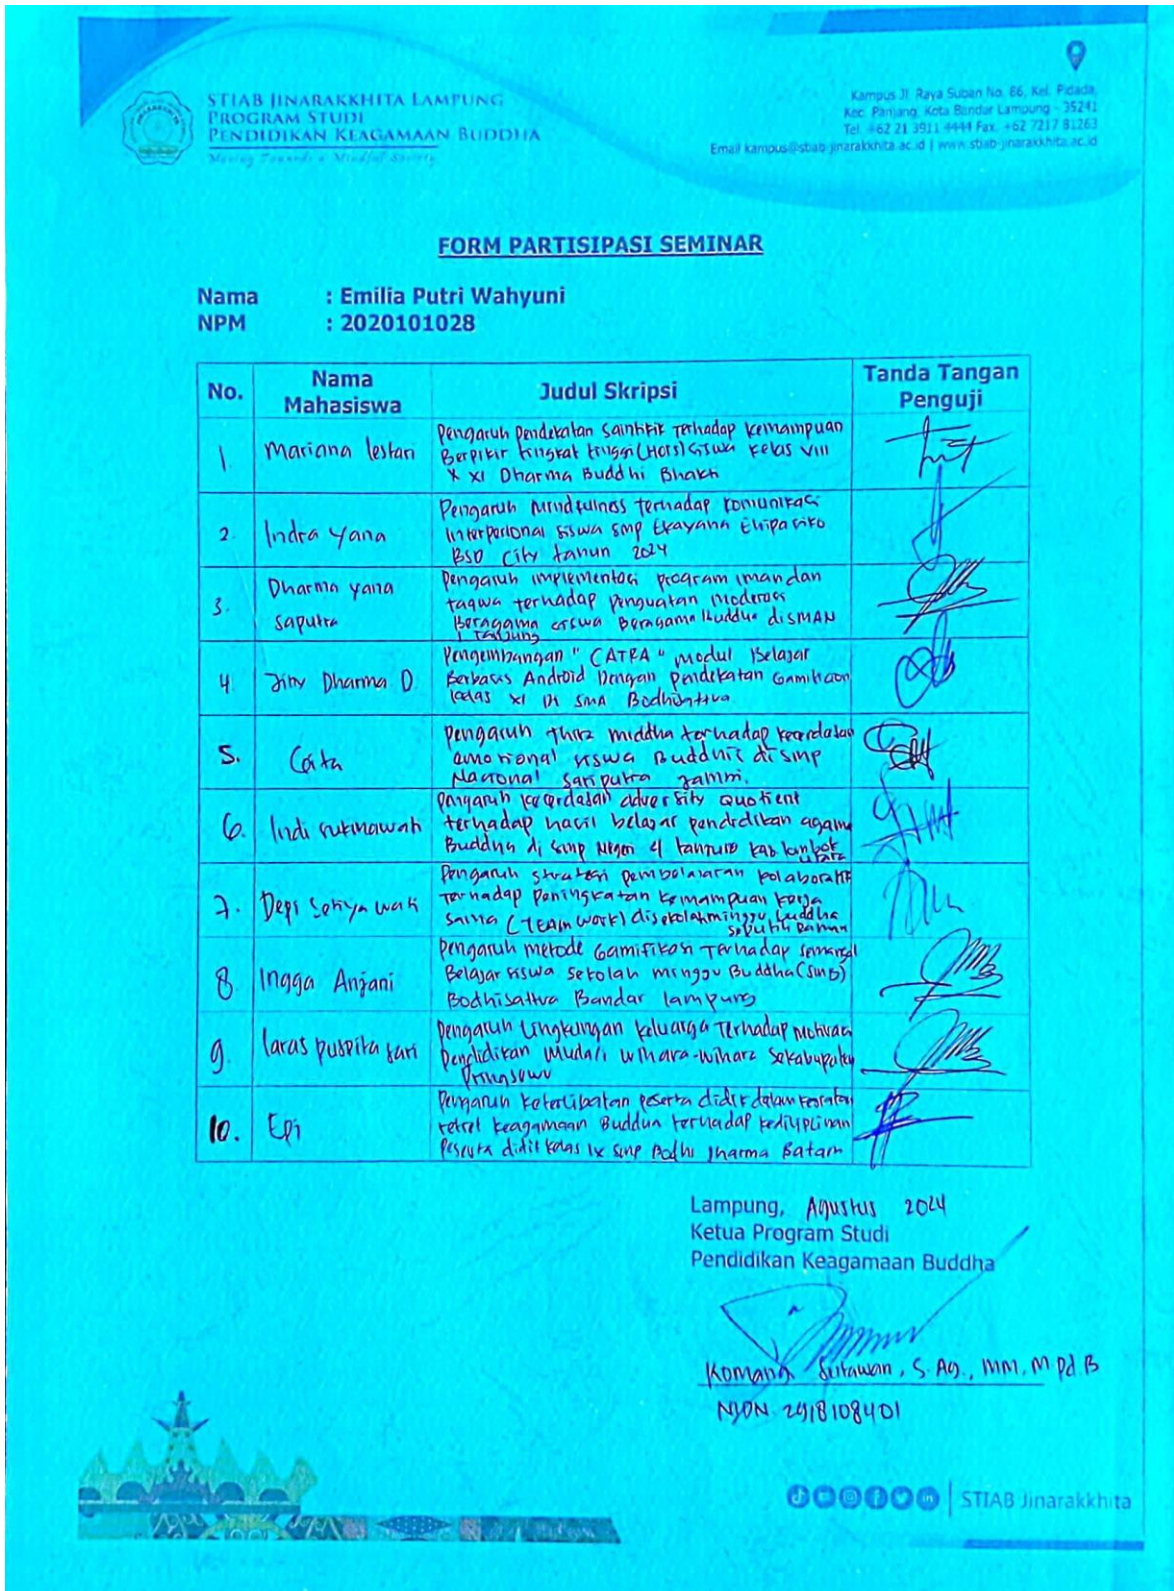 STIAB JINARAKKHITA LAMPUNG
PROGRAM STUDI
PENDIDIKAN KEAGAMAAN BUDDHA
Moving Towards a Mindful Society
Kampus Jl. Raya Suban No. 86, Kel. Pidada,
Kec. Panjang, Kota Bandar Lampung - 35241
Tel. +62 21 3911 4444 Fax. +62 7217 81263
Email kampus@stiab-jinarakkhita.ac.id | www.stiab-jinarakkhita.ac.id
FORM PARTISIPASI SEMINAR
Nama : Emilia Putri Wahyuni
NPM : 2020101028
No. Nama Mahasiswa Judul Skripsi Tanda Tangan Penguji
1. Mariana lestari
Pengaruh Pendekatan Saintifik Terhadap Kemampuan
Berpikir tingkat tinggi (HOTS) Siswa Kelas VIII
X XI Dharma Buddhi Bhakti
2. Indra Yana
Pengaruh Mindfulness terhadap komunikasi
Interpersonal siswa smp Ekayana Ehipassiko
BSD City tahun 2024
3. Dharma yana saputra
Pengaruh implementasi program iman dan
taqwa terhadap Penguatan Moderasi
Beragama siswa Beragama Buddha di SMAN
1 Tanjung
4. Jihy Dharma D
Pengembangan " CATRA " modul Belajar
Berbasis Android Dengan Pendekatan Gamification
kelas XI Di SMA Bodhisattva
5. Cata
Pengaruh thina middha terhadap kecerdasan
emotional siswa Buddhis di smp
Nasional Sariputra Jambi.
6. Indi sukmawati
Pengaruh kecerdasan adversity quotient
terhadap hasil belajar pendidikan agama
Buddha di smp Negeri 4 tanjung kab. lombok
utara
7. Depi Setiya wati
Pengaruh strategi pembelajaran kolaboratif
Terhadap Peningkatan Kemampuan Kerja
Sama (TEAM WORK) di sekolah minggu buddha
seputih Raman
8. Ingga Anjani
Pengaruh metode Gamifikasi Terhadap semangat
Belajar siswa sekolah minggu Buddha (SMB)
Bodhisattva Bandar lampung
9. laras puspita sari
Pengaruh Lingkungan Keluarga Terhadap Motivasi
Pendidikan Mudari Wihara-Wihara Sekabupaten
Pringsewu
10. Epi
Pengaruh Keterlibatan Peserta didik dalam kegiatan
retret keagamaan Buddha terhadap kedisiplinan
Peserta didik kelas IX smp Bodhi Dharma Batam
Lampung, Agustus 2024
Ketua Program Studi
Pendidikan Keagamaan Buddha
Komang Sutawan, S. Ag., MM, M Pd. B
NIDN. 2918108401
STIAB Jinarakkhita